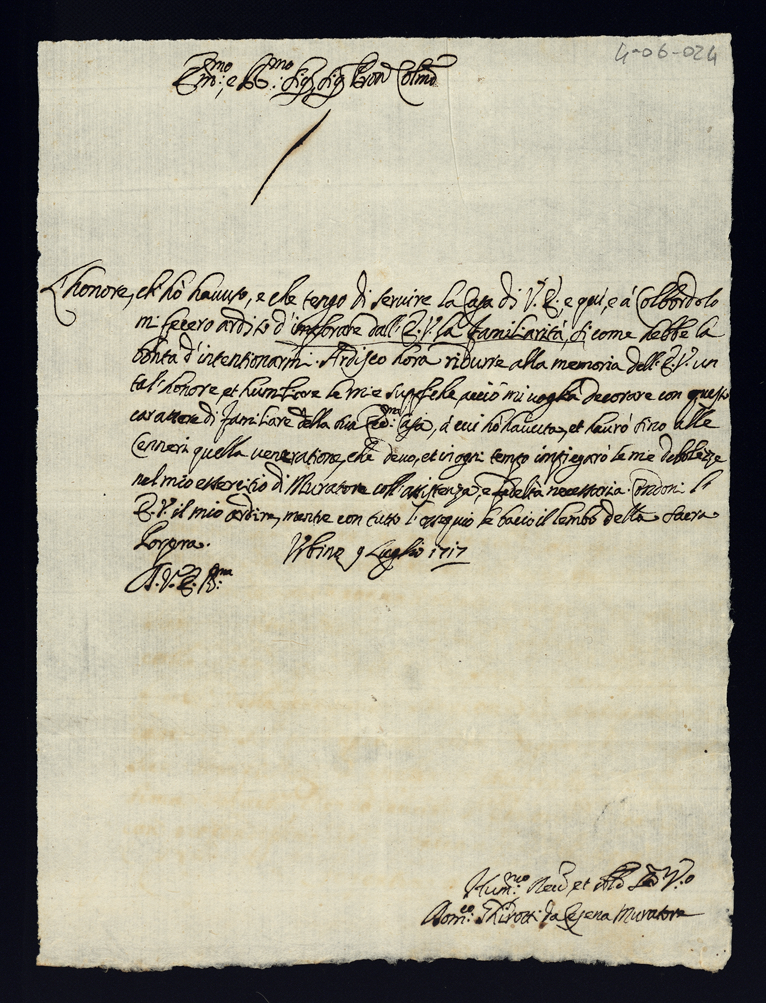 4-06-024
Em:mo e R:mo Sig.r Sig.r Pron Colmo
L'honore, ch'hò havuto, e che tengo di servire la Casa di V. E. e quì, e à Colbordolo
mi fecero ardito d'implorare dall'E. V. la familiarità, si come hebbe la
bontà d'intentionarmi. Ardisco hora ridurre alla memoria dell'E. V. un
tal'honore, et humiliare le mie suppliche acciò mi voglia decorare con questo
carattere di familiare della sua Ecc:ma Casa, à cui hò havuta, et haurò sino alle
Cenneri quella veneratione, che devo, et in ogni tempo impiegarò le mie debolezze
nel mio essercitio di Muratore coll'assistenza, e fedeltà necessaria. Condoni l'
E. V. il mio ardire, mentre con tutto l'ossequio le bacio il lembo della Sacra
Porpora.
Urbino 9 Luglio 1717
D. V. E. R:ma
Hum:mo Dev et
Dom:co da Cesena Muratore